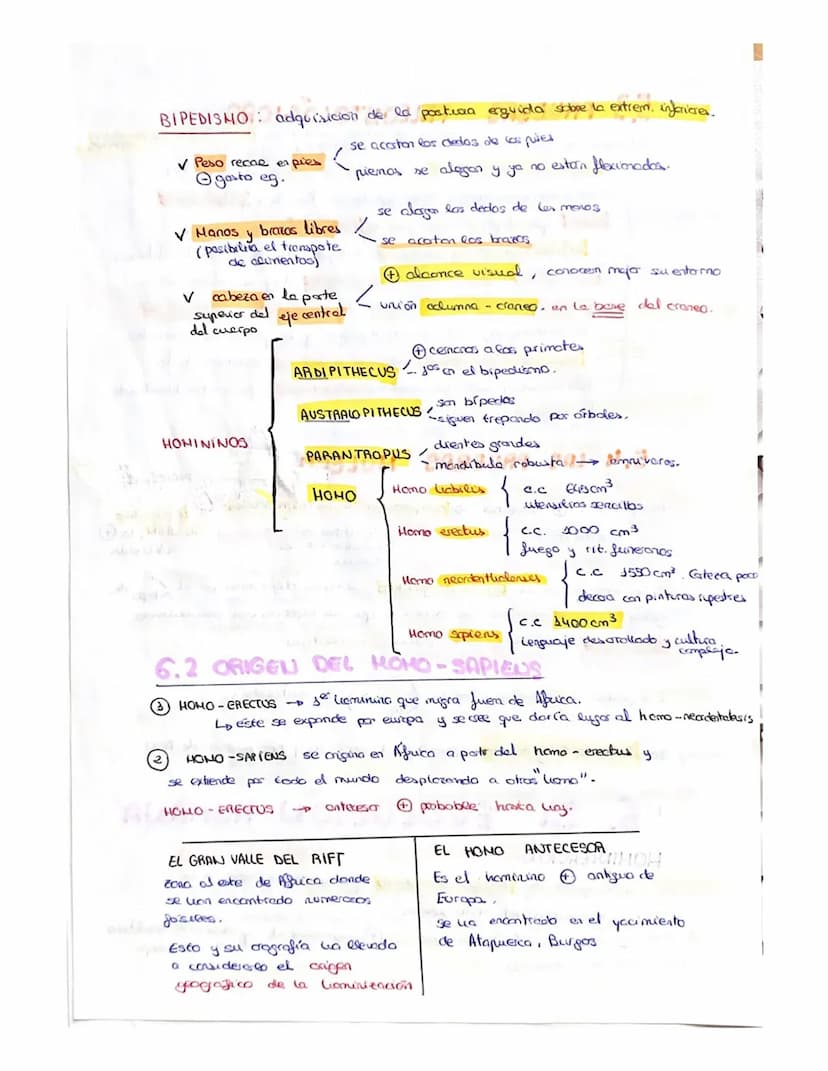 BIPEDISMO: adquisicion de la postura erguida sobre la extrem. inferiores.
se acortan los dedos de los pies
✓ Peso recae en pies
⊖ gasto eg.
piernas se alargan y ya no están flexionadas.
se alarga los dedos de las manos
✓ Manos y brazos libres
(posibilita el transporte de alimentos)
se acortan los brazos
⊕ alcance visual, conocen mejor su entorno
✓ cabeza en la parte superior del eje central del cuerpo
unión columna - craneo. en la base del craneo.
HOMININOS
⊕ cercanos a los primates
ARDIPITHECUS
1os en el bipedismo.
AUSTRALOPITHECUS
son bípedos
siguen trepando por árboles.
PARANTROPUS
dientes grandes
mandíbula robusta → omnívoros.
HOMO
Homo habilis
c.c 645 cm³
utensilios sencillos
Homo erectus
c.c. 1000 cm³
fuego y rit. funerarios
Homo neardenthalensis
c.c 1550 cm³. Cateza poco
decoa con pinturas rupestres
Homo sapiens
c.c 1400 cm³
Lenguaje desarollado y cultura compleja.
6.2 ORIGEN DEL HOMO-SAPIENS
① HOMO-ERECTUS → 1er hominino que migra fuera de África.
↳ este se expande por europa y se cree que daría lugar al homo-neardentalesis
② HOMO-SAPIENS se origina en África a partir del homo-erectus y
se extiende por todo el mundo desplazando a otros "homo".
HOMO-ERECTUS → antecesor ⊕ probable hasta hoy.
EL GRAN VALLE DEL RIFT
zona al este de África donde
se han encontrado numerosos
fósiles.
Esto y su orografía ha llevado
a considerarlo el origen
geografico de la hominización
EL HOMO ANTECESOR
Es el hominino ⊕ antiguo de
Europa.
Se ha encontrado en el yacimiento
de Atapuerca, Burgos